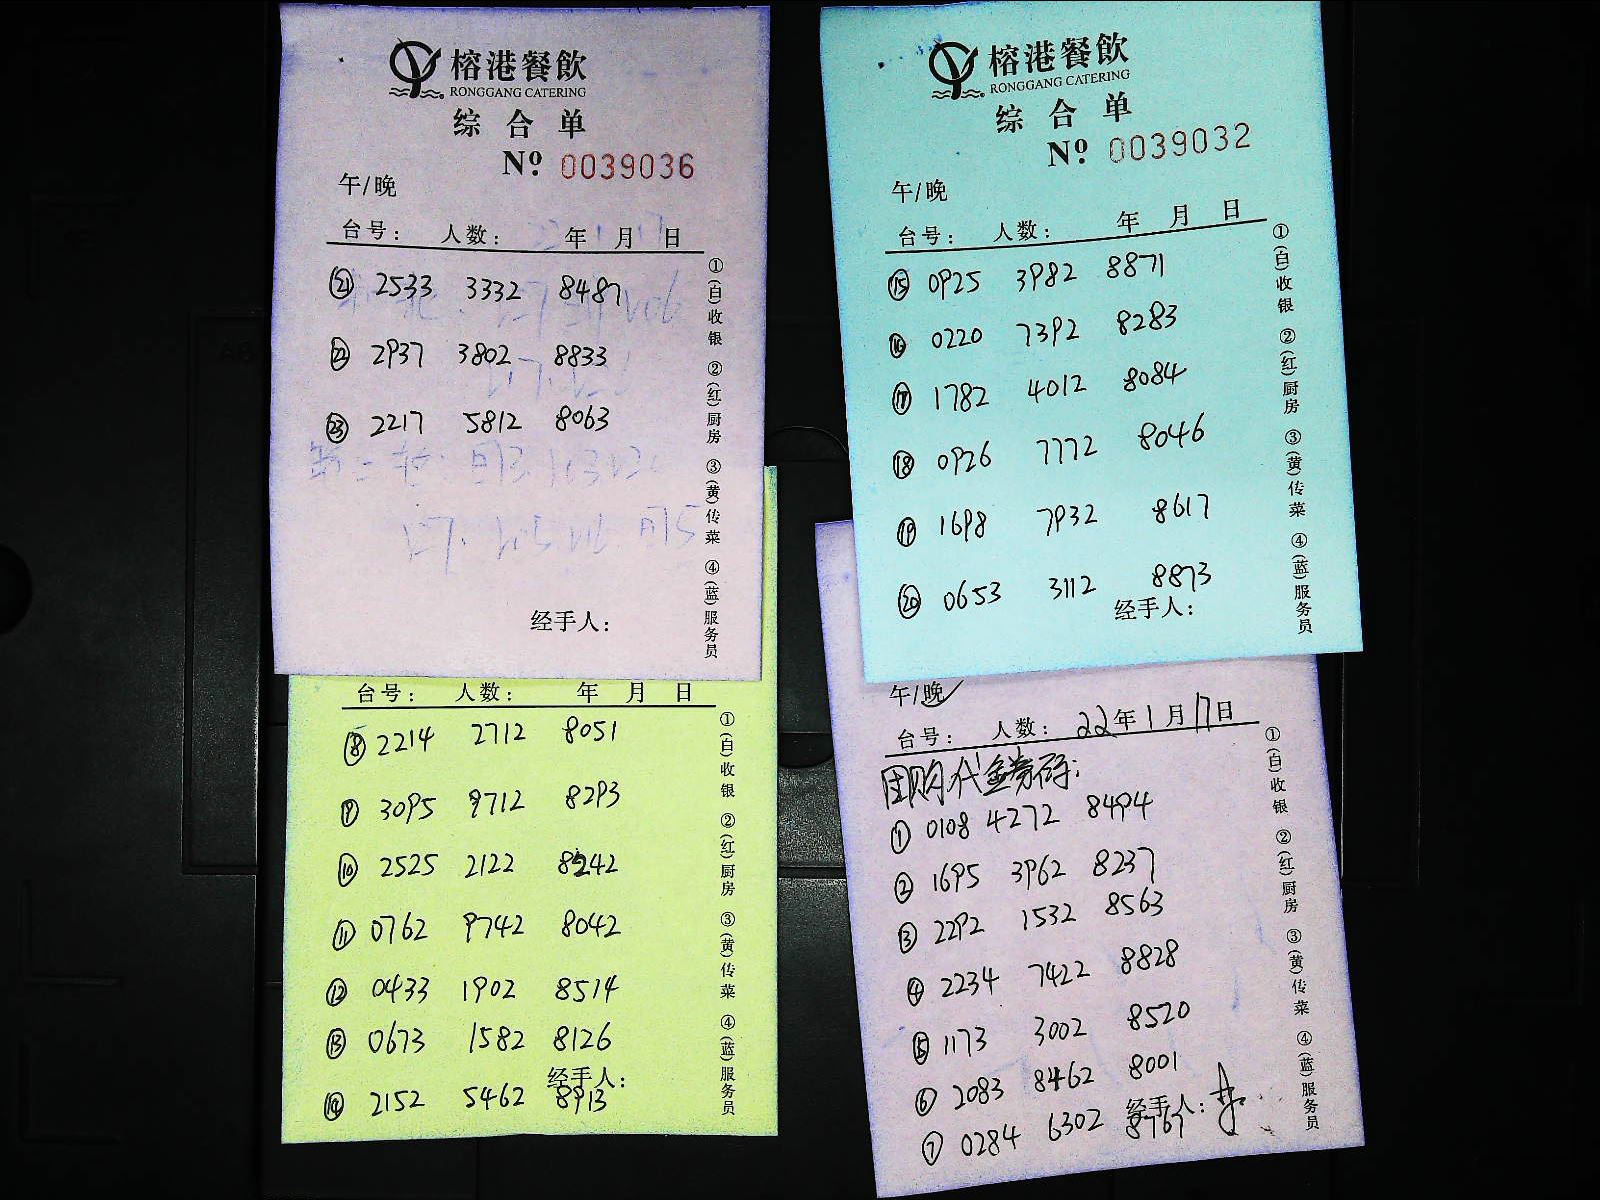 榕港餐飲
RONGGANG CATERING
综合单
Nº 0039036
午/晚
台号: 人数: 年 月 日
㉑ 2533 3332 8487
㉒ 2937 3802 8833
㉓ 2217 5812 8063
经手人:
①(白)收银 ②(红)厨房 ③(黄)传菜 ④(蓝)服务员
台号: 人数: 年 月 日
⑧ 2214 2712 8051
⑨ 3095 9712 8293
⑩ 2525 2122 8242
⑪ 0762 9742 8042
⑫ 0433 1902 8514
⑬ 0673 1582 8126
经手人:
⑭ 2152 5462 8913
①(白)收银 ②(红)厨房 ③(黄)传菜 ④(蓝)服务员
榕港餐飲
RONGGANG CATERING
综合单
Nº 0039032
午/晚
台号: 人数: 年 月 日
⑮ 0925 3982 8871
⑯ 0220 7392 8283
⑰ 1782 4012 8084
⑱ 0926 7772 8046
⑲ 1698 7932 8617
⑳ 0653 3112 8873
经手人:
①(白)收银 ②(红)厨房 ③(黄)传菜 ④(蓝)服务员
午/晚✓
台号: 人数: 22年1月17日
团购代金券码:
① 0108 4272 8494
② 1695 3962 8237
③ 2292 1532 8563
④ 2234 7422 8828
⑤ 1173 3002 8520
⑥ 2083 8462 8001
经手人:
⑦ 0284 6302 8767
①(白)收银 ②(红)厨房 ③(黄)传菜 ④(蓝)服务员